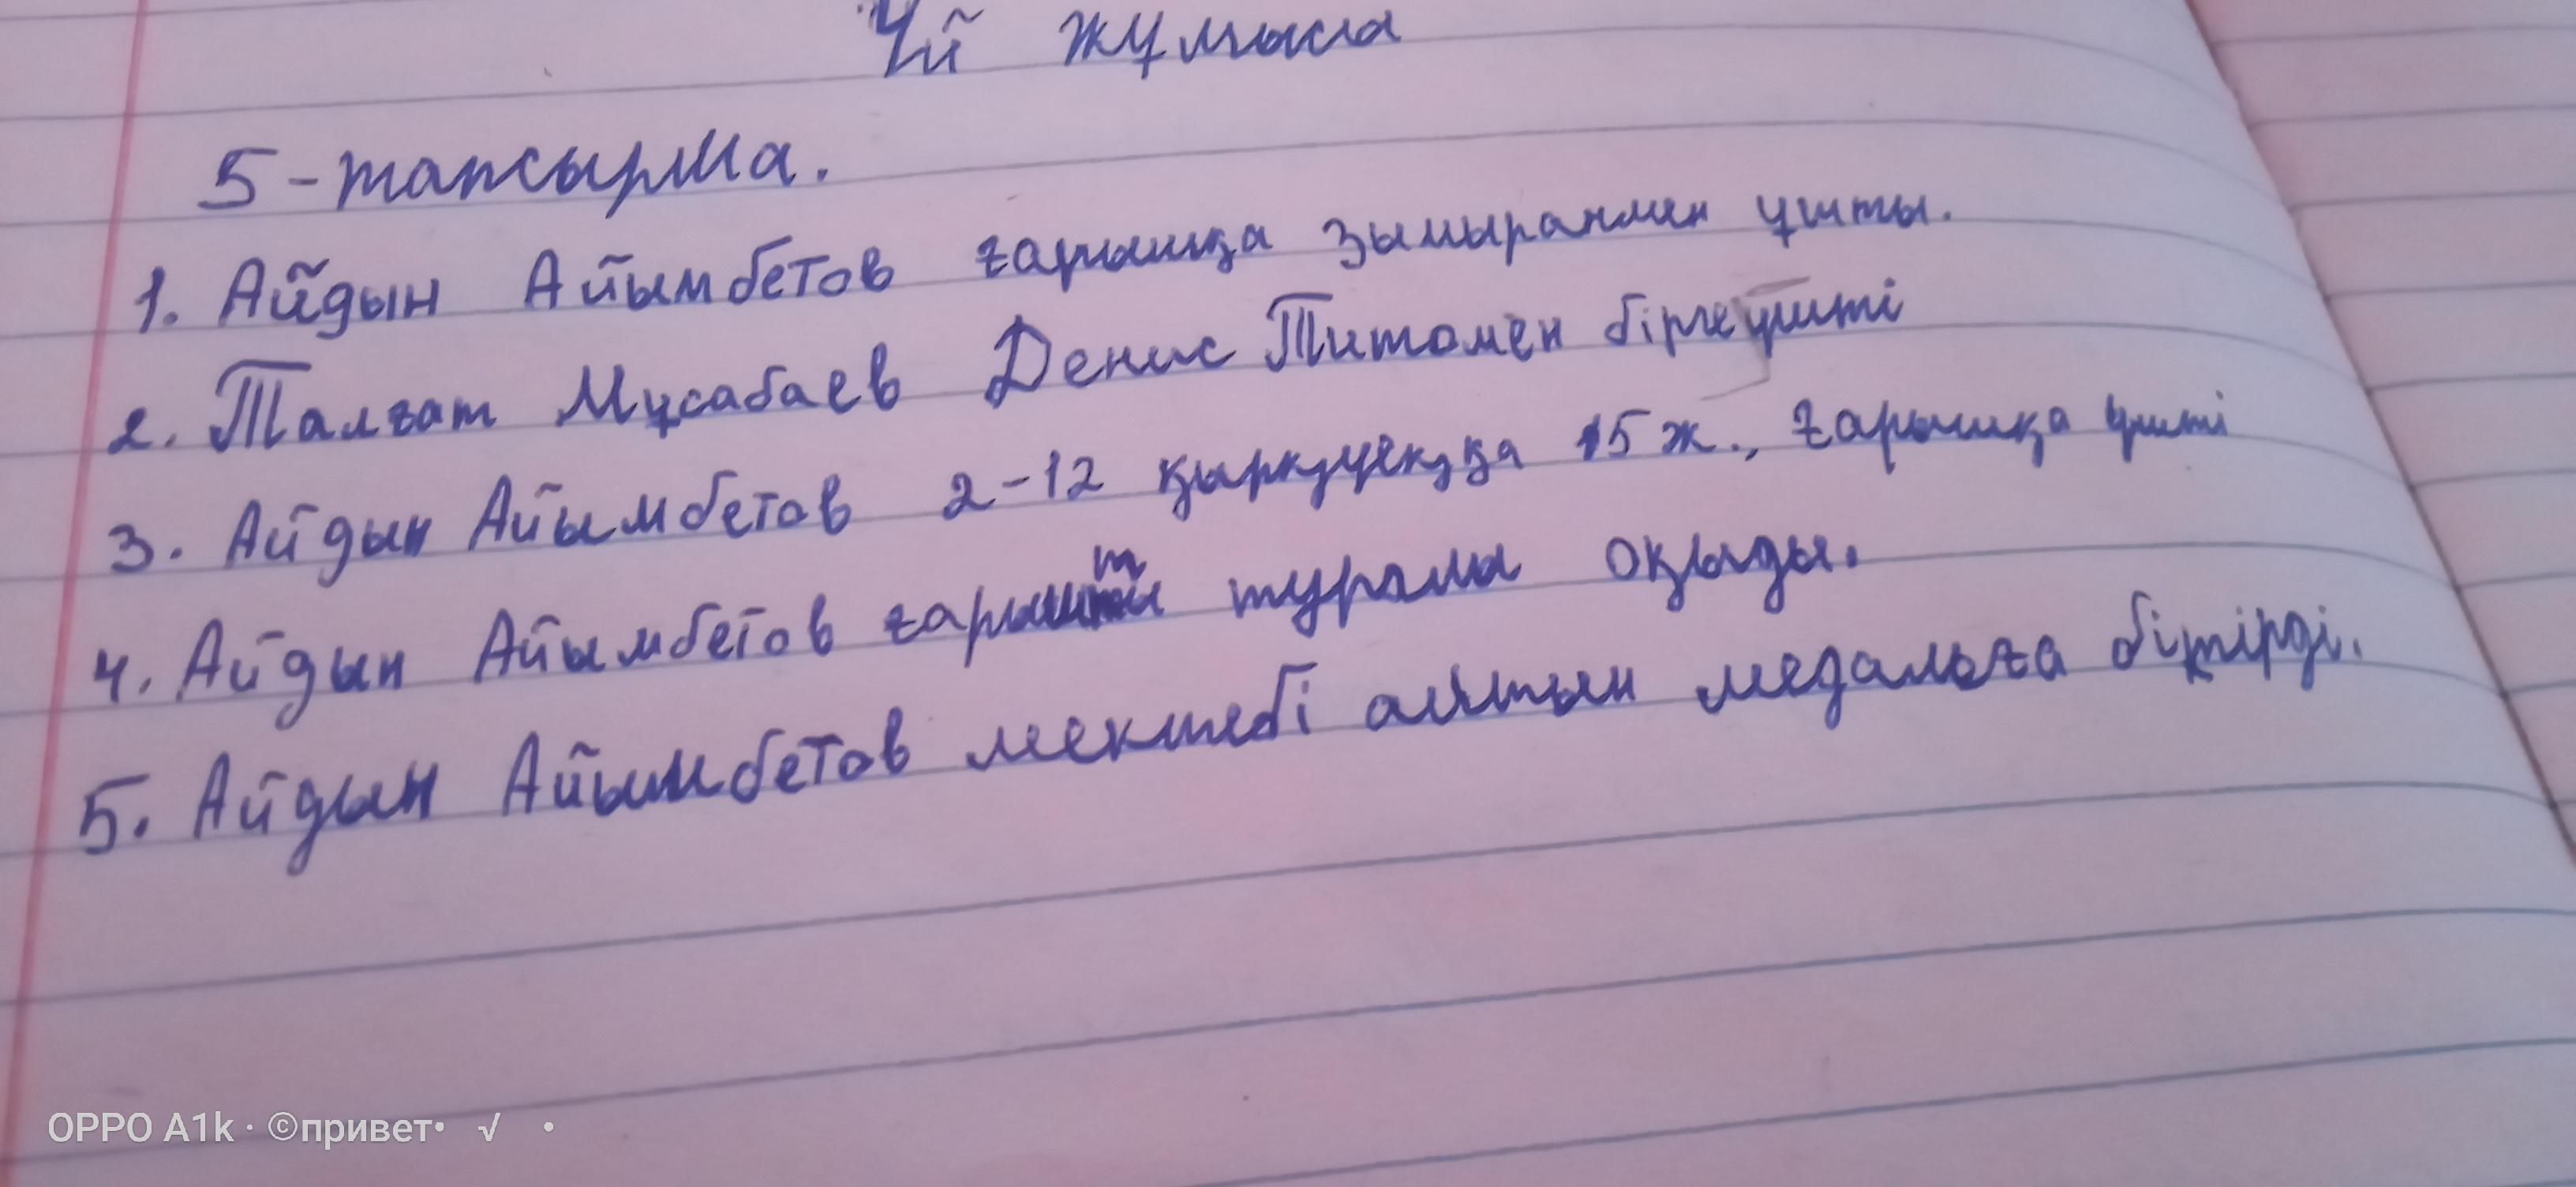 Үй жұмысы
5-тапсырма.
1. Айдын Айымбетов ғарышқа зымыранмен ұшты.
2. Талғат Мұсабаев Денис Титомен бірге ұшті
3. Айдын Айымбетов 2-12 қыркүуекқа 15 ж., ғарышқа ұшті
4. Айдын Айымбетов ғарышты турылы оқыды.
5. Айдын Айымбетов мектебі алтын медальға бітірді.
OPPO A1k · ©привет• √ •